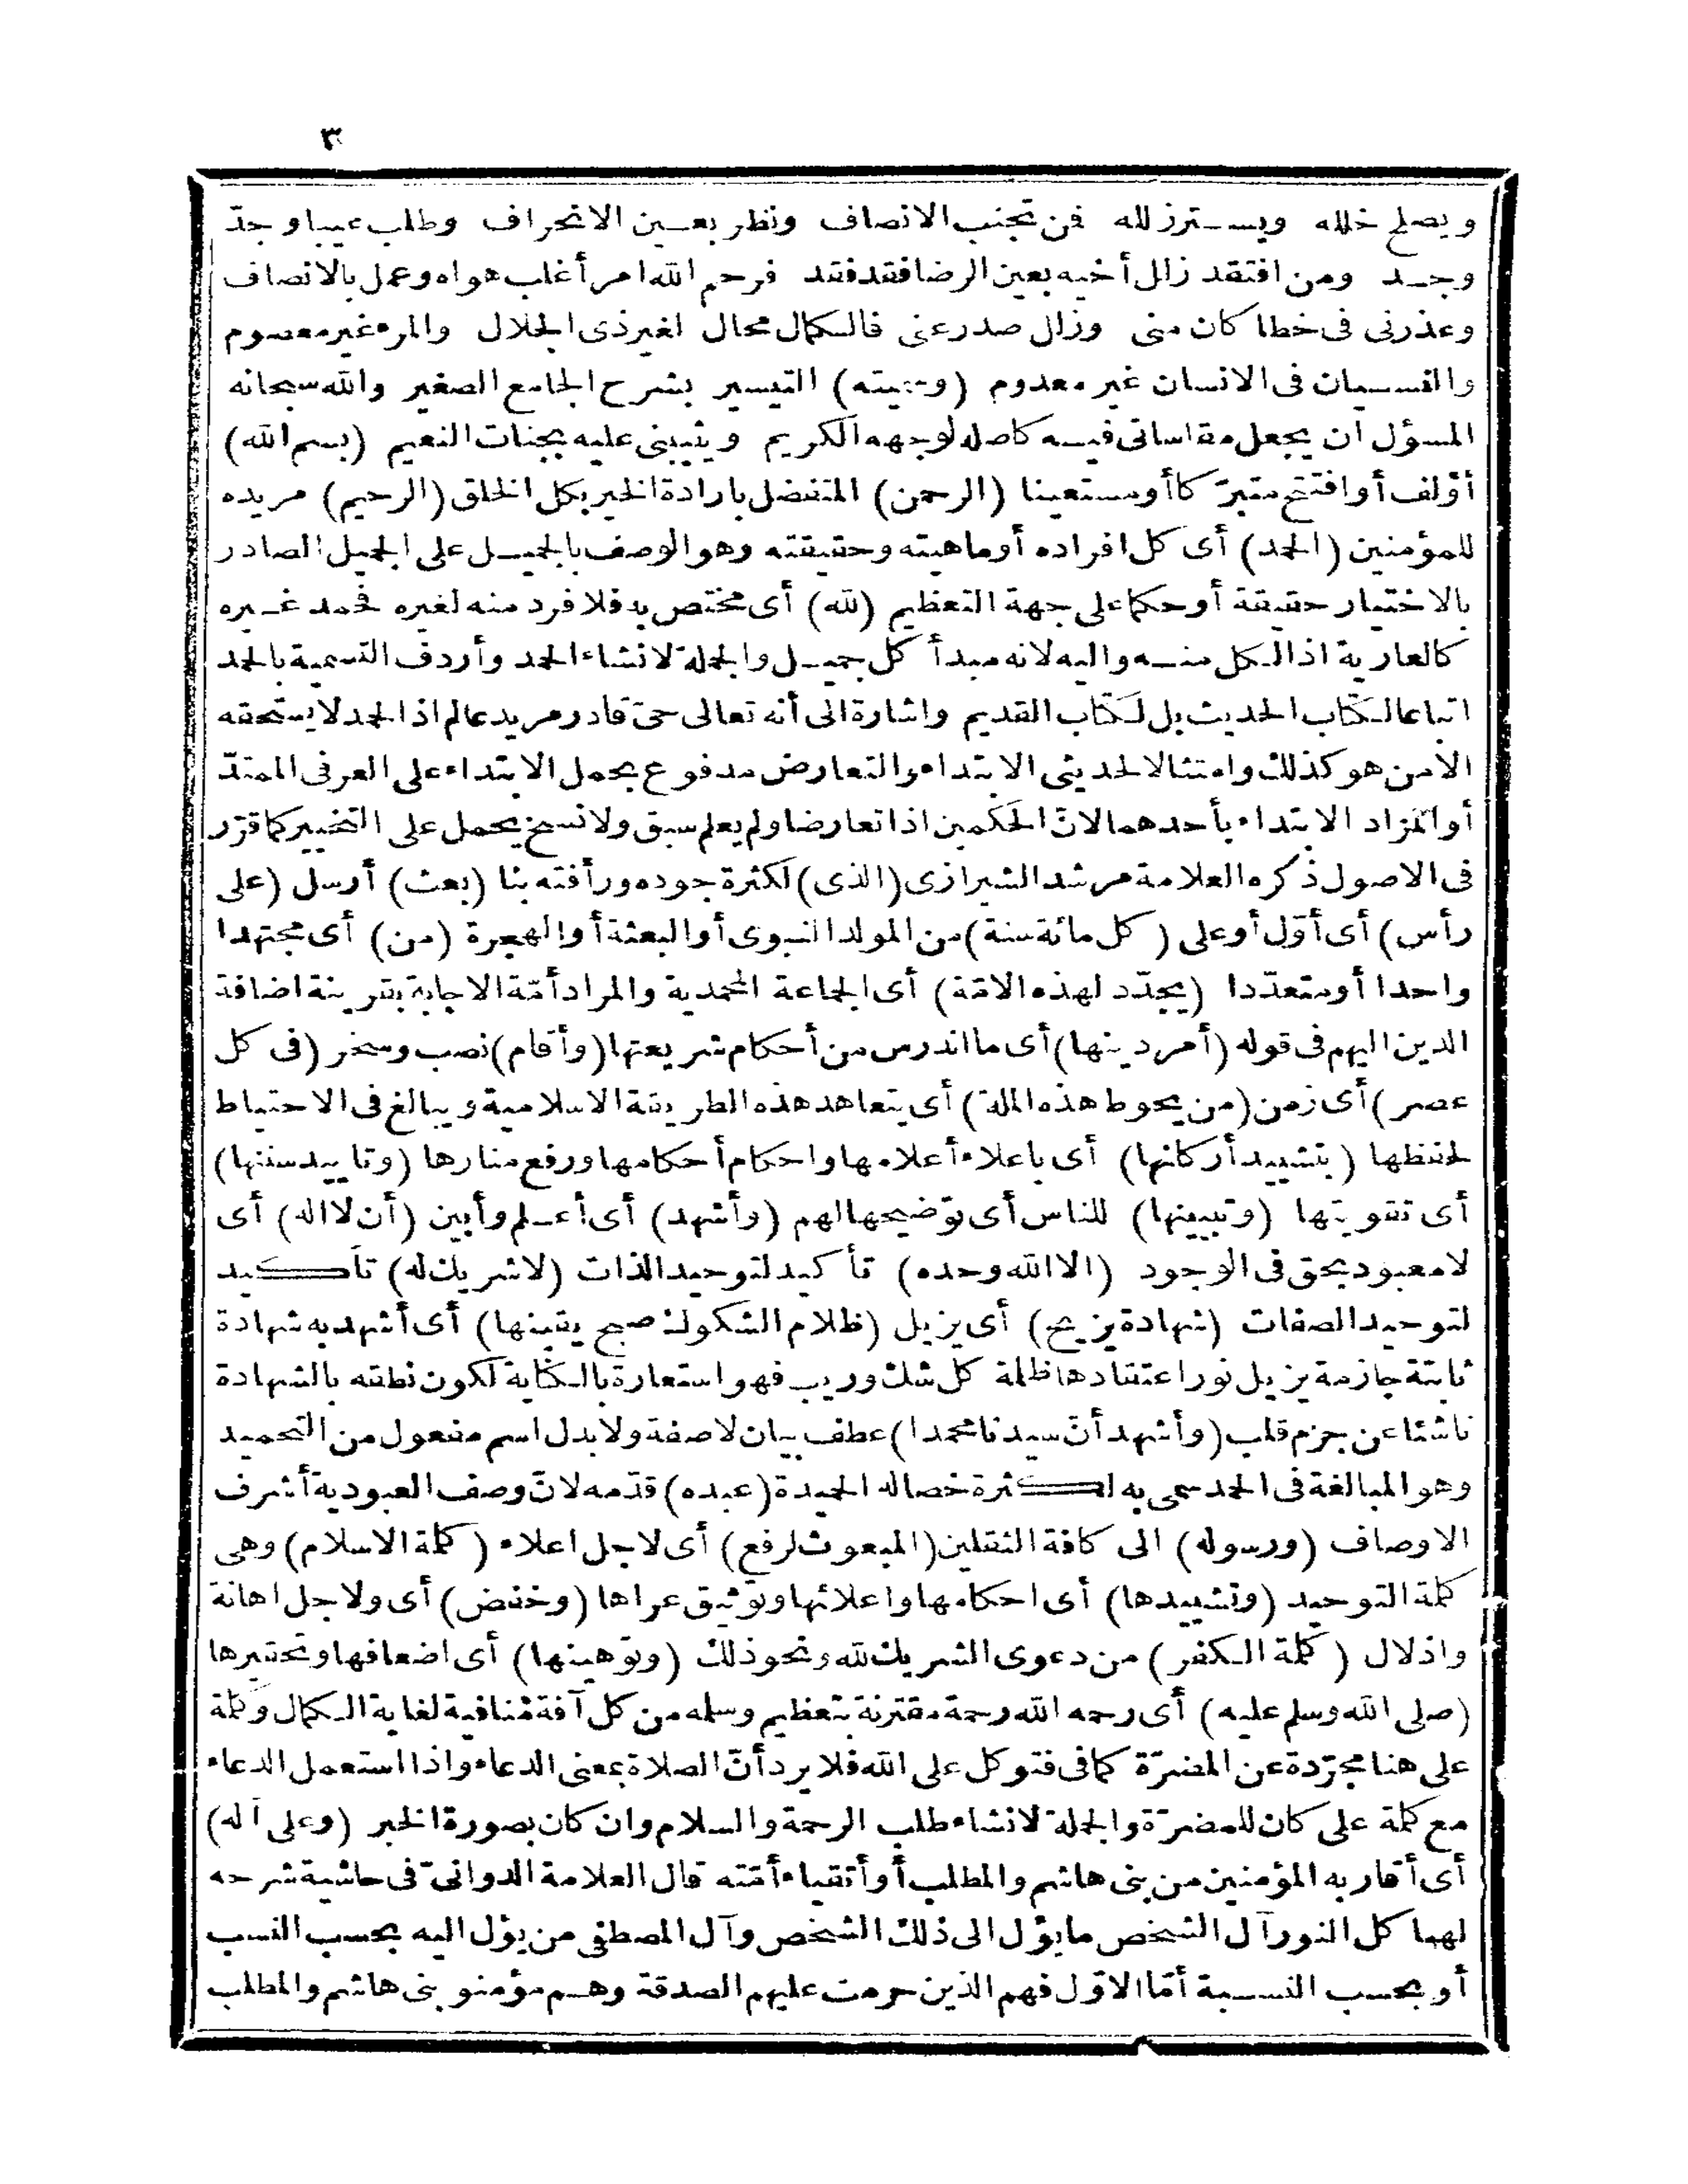 ٣
ويصلح خلله ويستر زلله فمن تجنب الانصاف ونظر بعين الانحراف وطلب عيبا وجدّ
وجد ومن افتقد زلل أخيه بعين الرضا فقد فقد فرحم الله امرأ غلب هواه وعمل بالانصاف
وعذرنى فى خطا كان منى وزلل صدر عنى فالكمال محال لغير ذى الجلال والمرء غير معصوم
والنسيان فى الانسان غير معدوم (وسميته) التيسير بشرح الجامع الصغير والله سبحانه
المسؤل ان يجعل مقاساتى فيه كاصله لوجهه الكريم ويثيبنى عليه بجنات النعيم (بسم الله)
أؤلف أو افتتح متبرّكا أو مستعينا (الرحمن) المتفضل بارادة الخير بكل الخلق (الرحيم) مريده
للمؤمنين (الحمد) أى كل افراده أو ماهيته وحقيقته وهو الوصف بالجميل على الجميل الصادر
بالاختيار حقيقة أو حكما على جهة التعظيم (لله) أى مختص به فلا فرد منه لغيره فحمد غيره
كالعارية اذ الكل منه واليه لانه مبدأ كل جميل والجملة لانشاء الحمد وأردف التسمية بالحمد
اتباعا لكتاب الحديث بل لكتاب القديم واشارة الى أنه تعالى حىّ قادر مريد عالم اذ الحمد لا يستحقه
الا من هو كذلك وامتثالا لحديثى الابتداء والتعارض مدفوع بحمل الابتداء على العرفى الممتدّ
أو المراد الابتداء بأحدهما لانّ الحكمين اذا تعارضا ولم يعلم سبق ولا نسخ يحمل على التخيير كما قرّر
فى الاصول ذكره العلامة مرشد الشيرازى (الذى) لكثرة جوده ورأفته بنا (بعث) أرسل (على
رأس) أى أوّل أو على (كل مائة سنة) من المولد النبوى أو البعثة أو الهجرة (من) أى مجتهدا
واحدا أو متعدّدا (يجدّد لهذه الامّة) أى الجماعة المحمدية والمراد أمّة الاجابة بقرينة اضافة
الدين اليهم فى قوله (أمر دينها) أى ما اندرس من أحكام شريعتها (وأقام) نصب وسخر (فى كل
عصر) أى زمن (من يحوط هذه الملة) أى يتعاهد هذه الطريقة الاسلامية ويبالغ فى الاحتياط
لحفظها (بتشييد أركانها) أى باعلاء أعلامها واحكام أحكامها ورفع منارها (وتاييد سننها)
أى تقويتها (وتبيينها) للناس أى توضيحها لهم (وأشهد) أى أعلم وأبين (أن لا اله) أى
لا معبود بحق فى الوجود (الا الله وحده) تأكيد لتوحيد الذات (لا شريك له) تأكيد
لتوحيد الصفات (شهادة يزيح) أى يزيل (ظلام الشكوك صبح يقينها) أى أشهد به شهادة
ثابتة جازمة يزيل نور اعتقادها ظلمة كل شك وريب فهو استعارة بالكناية لكون نطقه بالشهادة
ناشئا عن جزم قلب (وأشهد أنّ سيدنا محمدا) عطف بيان لا صفة ولا بدل اسم مفعول من التحميد
وهو المبالغة فى الحمد سمى به لكثرة خصاله الحميدة (عبده) قدّمه لانّ وصف العبودية أشرف
الاوصاف (ورسوله) الى كافة الثقلين (المبعوث لرفع) أى لاجل اعلاء (كلمة الاسلام) وهى
كلمة التوحيد (وتشييدها) أى احكامها واعلائها وتوثيق عراها (وخفض) أى ولاجل اهانة
واذلال (كلمة الكفر) من دعوى الشريك لله ونحو ذلك (وتوهينها) أى اضعافها وتحقيرها
(صلى الله وسلم عليه) أى رحمه الله رحمة مقترنة بتعظيم وسلمه من كل آفة منافية لغاية الكمال وكلمة
على هنا مجرّدة عن المضرّة كما فى فتوكل على الله فلا يرد أنّ الصلاة بمعنى الدعاء واذا استعمل الدعاء
مع كلمة على كان للمضرّة والجملة لانشاء طلب الرحمة والسلام وان كان بصورة الخبر (وعلى آله)
أى أقاربه المؤمنين من بنى هاشم والمطلب أو أتقياء أمّته قال العلامة الدوانىّ فى حاشية شرحه
لهيا كل النور آل الشخص ما يؤل الى ذلك الشخص وآل المصطفى من يؤل اليه بحسب النسب
أو بحسب النسبة أمّا الاوّل فهم الذين حرمت عليهم الصدقة وهم مؤمنو بنى هاشم والمطلب